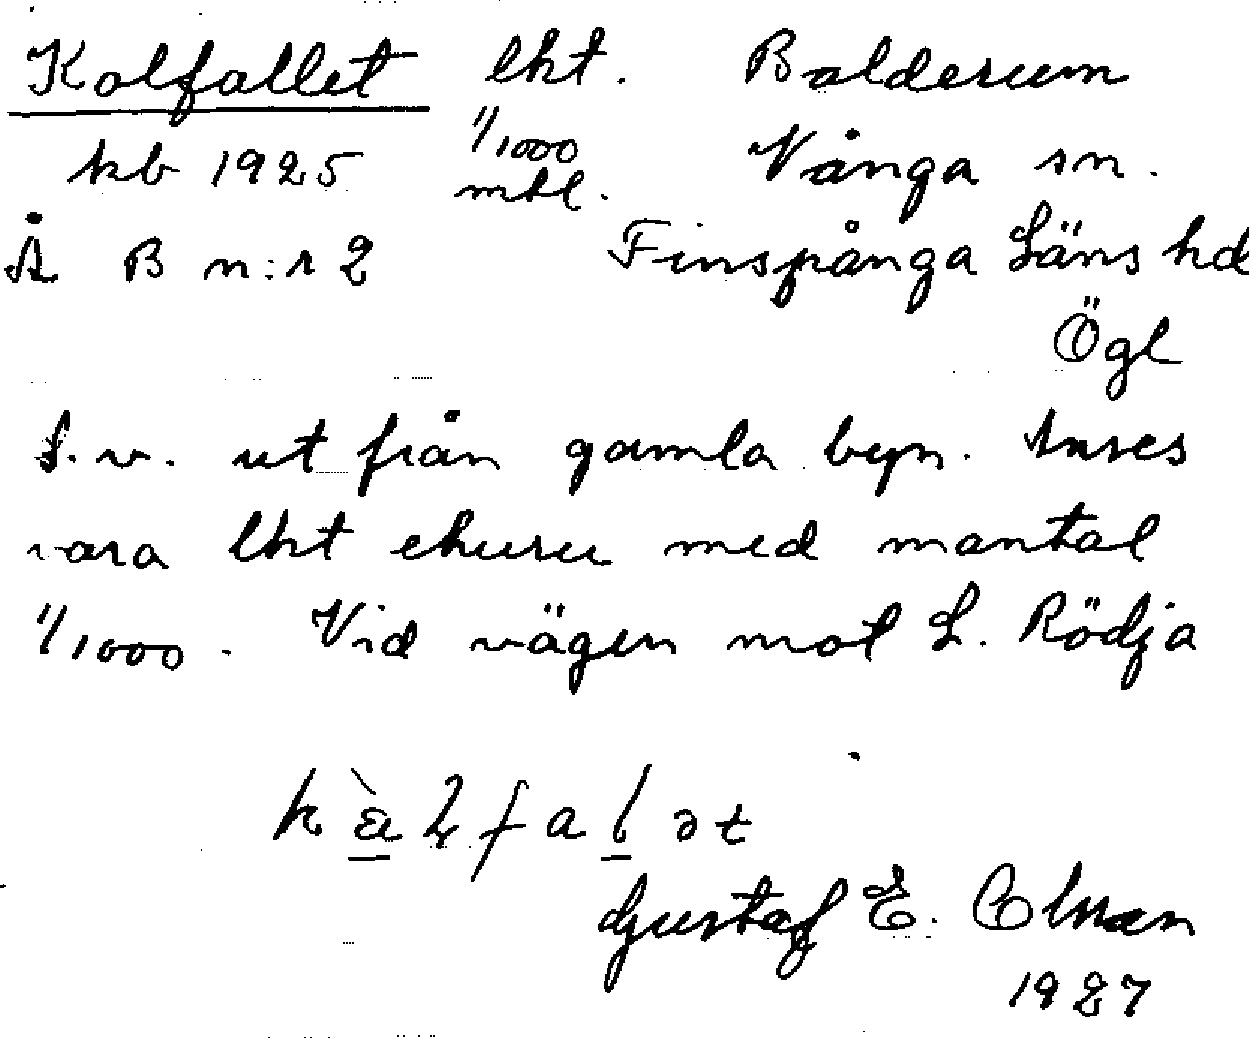 Kolfallet lht. Balderum
kb 1925 1/1000 mtl. Vånga sn.
Å B n:r 2 Finspånga Läns hd
Ögl
S.v. ut från gamla byn. Anses
vara lht ehuru med mantal
1/1000. Vid vägen mot L. Rödja
Gustaf E.
1927